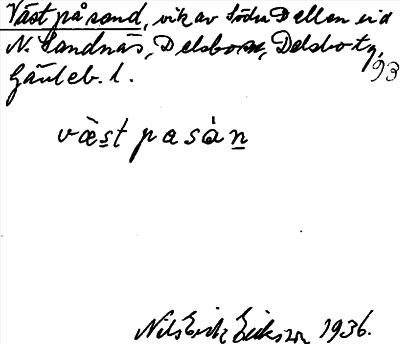 Väst på sand, vik av Södra Dellen vid
N. Sandnäs, Delsbo sn, Delsbo tg,
Gävleb. l. 93
væ̀st pa sán
Nils Erik Erikson 1936.